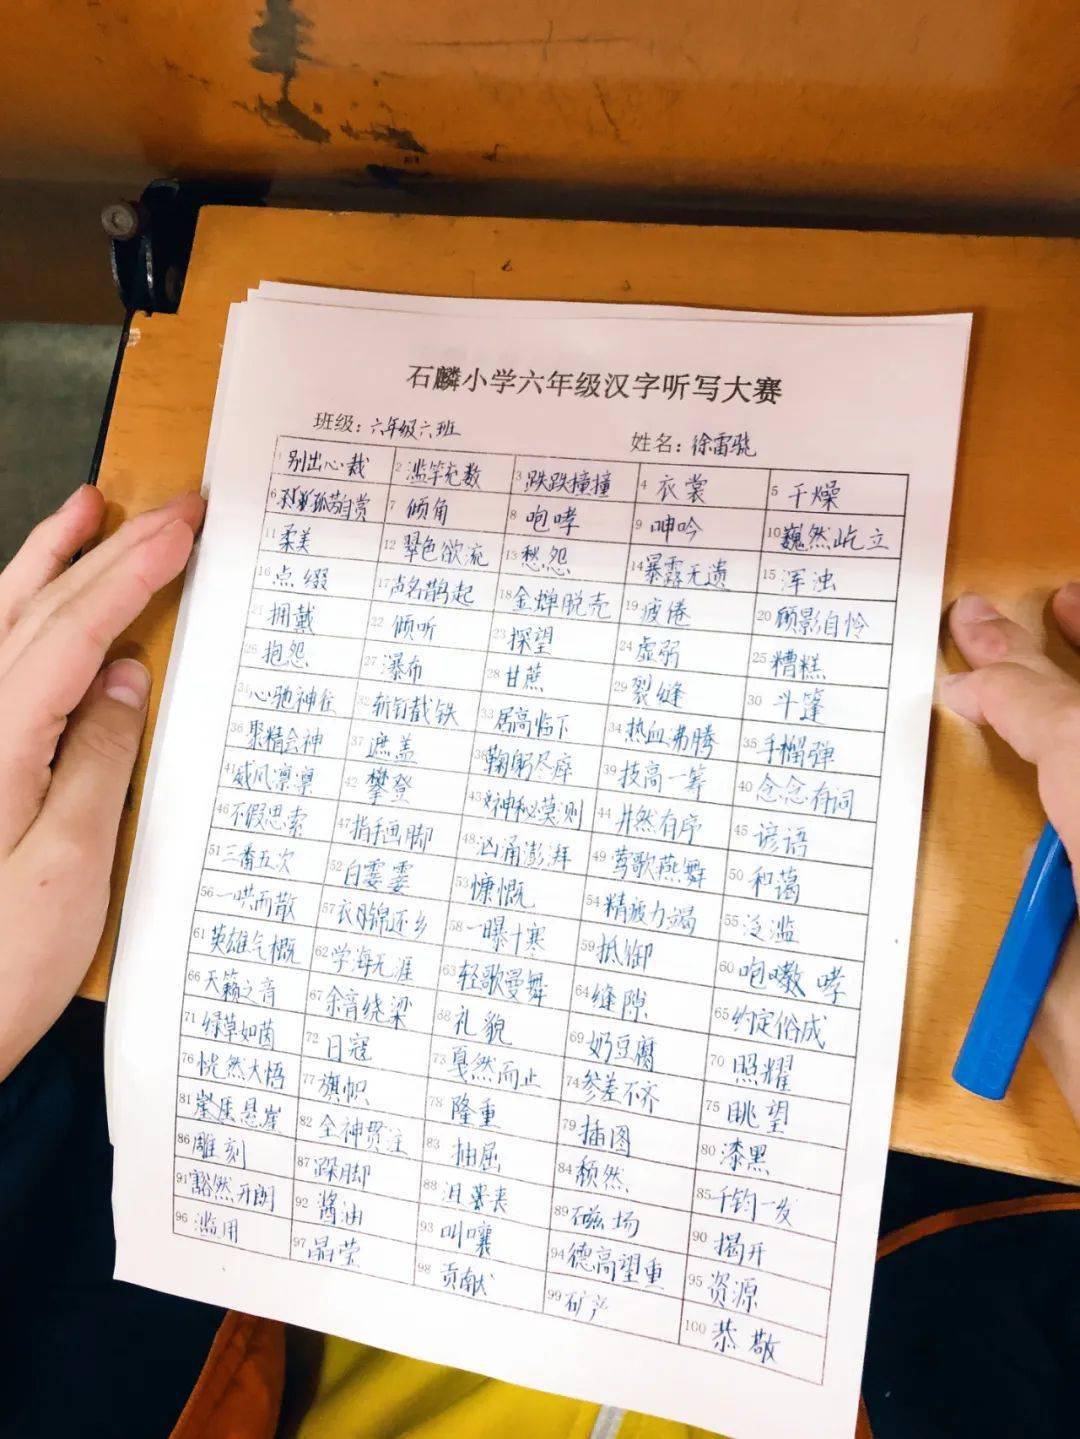 石麟小学六年级汉字听写大赛
班级：六年级六班 姓名：徐雷骁
1 别出心裁 2 滥竽充数 3 跌跌撞撞 4 衣裳 5 干燥
6 孤芳自赏 7 倾角 8 咆哮 9 呻吟 10 巍然屹立
11 柔美 12 翠色欲流 13 愁怨 14 暴露无遗 15 浑浊
16 点缀 17 声名鹊起 18 金蝉脱壳 19 疲倦 20 顾影自怜
21 拥戴 22 倾听 23 探望 24 虚弱 25 糟糕
26 抱怨 27 瀑布 28 甘蔗 29 裂缝 30 斗篷
31 心驰神往 32 斩钉截铁 33 居高临下 34 热血沸腾 35 手榴弹
36 聚精会神 37 遮盖 38 鞠躬尽瘁 39 技高一筹 40 念念有词
41 威风凛凛 42 攀登 43 神秘莫测 44 井然有序 45 谚语
46 不假思索 47 指手画脚 48 汹涌澎湃 49 莺歌燕舞 50 和蔼
51 三番五次 52 白雯雯 53 慷慨 54 精疲力竭 55 泛滥
56 一哄而散 57 衣锦还乡 58 一曝十寒 59 抵御 60 咆 哮
61 英雄气概 62 学海无涯 63 轻歌曼舞 64 缝隙 65 约定俗成
66 天籁之音 67 余音绕梁 68 礼貌 69 奶豆腐 70 照耀
71 绿草如茵 72 日寇 73 戛然而止 74 参差不齐 75 眺望
76 恍然大悟 77 旗帜 78 隆重 79 插图 80 漆黑
81 悬崖 82 全神贯注 83 抽屉 84 颓然 85 千钧一发
86 雕刻 87 跺脚 88 沮丧 89 磁场 90 揭开
91 豁然开朗 92 酱油 93 叫嚷 94 德高望重 95 资源
96 滥用 97 晶莹 98 贡献 99 矿产 100 恭敬